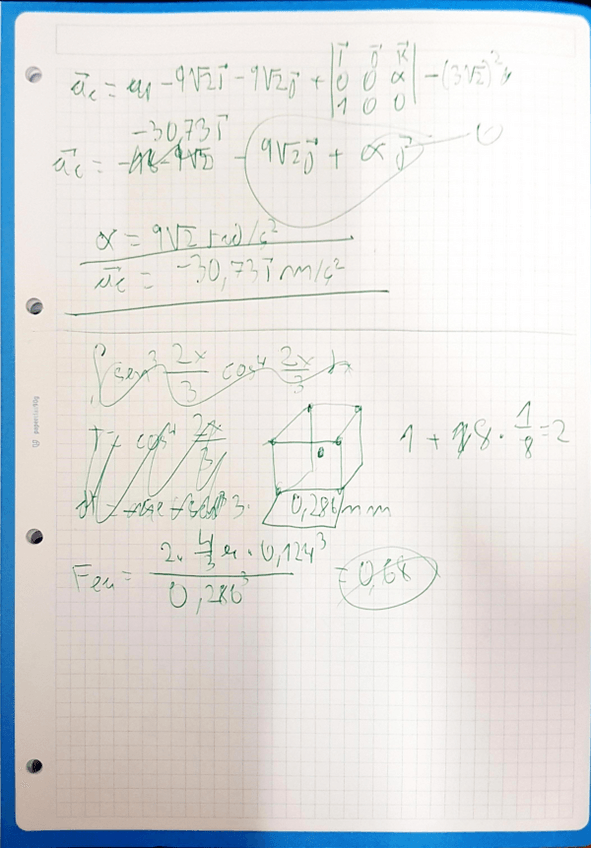 a⃗c = -9√2 i⃗ - 9√2 j⃗ + |i⃗ j⃗ k⃗| - (3√2)²
|0 0 α|
|1 0 0|
-30,73 i⃗
a⃗c = -9√2 - 9√2 j⃗ + α j⃗ 0
α = 9√2 rad/s²
a⃗c = -30,73 i⃗ m/s²
∫ sen³ 2x/3 cos⁴ 2x/3 dx
T = cos⁴ 2x/3
1 + 8 · 1/8 = 2
0,286 nm
Feu = 2 · 4/3 π · 0,124³ / 0,286³ = 0,68